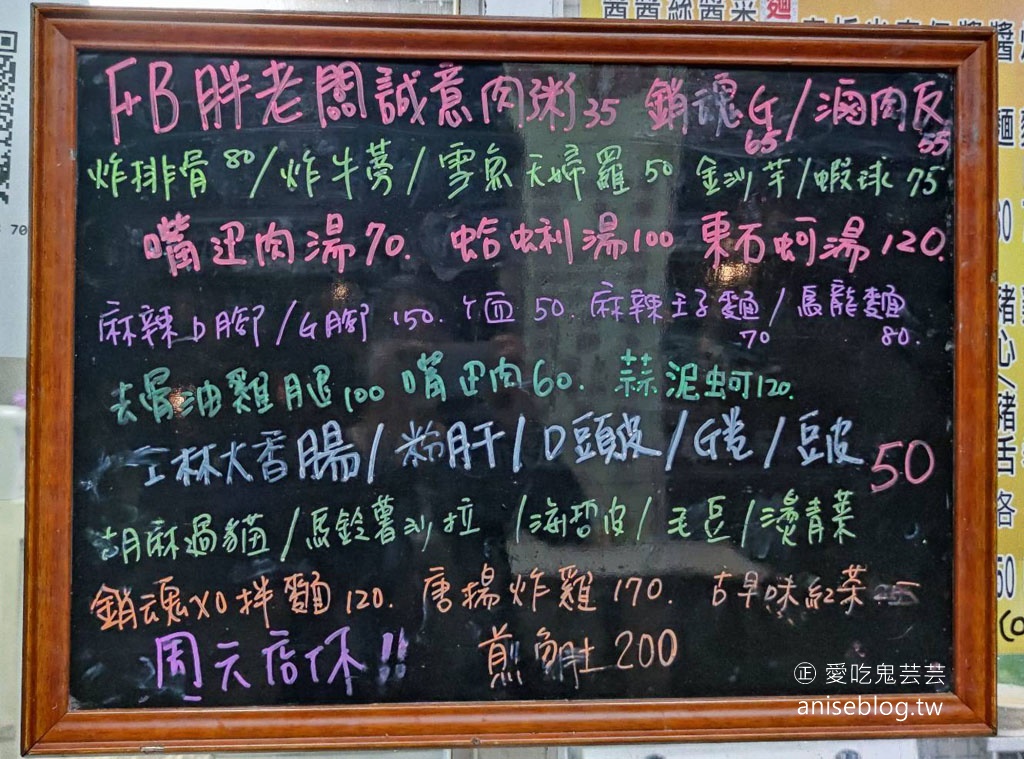 FB胖老闆誠意肉粥35 銷魂G/滷肉反
65 55
炸排骨80/炸牛蒡/雪魚天婦羅50 金沙芋/蝦球75
嘴迌肉湯70. 蛤蜊湯100 東石蚵湯120.
麻辣D腳/G腳150. 丫血50. 麻辣王子麵/烏龍麵
70 80.
去骨油雞腿100 嘴迌肉60. 蒜泥蚵120.
士林大香腸/粉肝/D頭皮/G卷/豆皮 50
胡麻過貓/馬鈴薯沙拉/海哲皮/毛豆/燙青菜
銷魂XO拌麵120. 唐揚炸雞170. 古早味紅茶
周元店休!! 煎魚肚200
愛吃鬼芸芸
aniseblog.tw